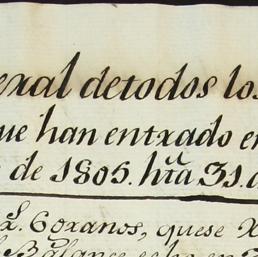 exal detodos los
ue han entxado en
de 1805. hta 31. d
x. Goxanos, quese
Balance